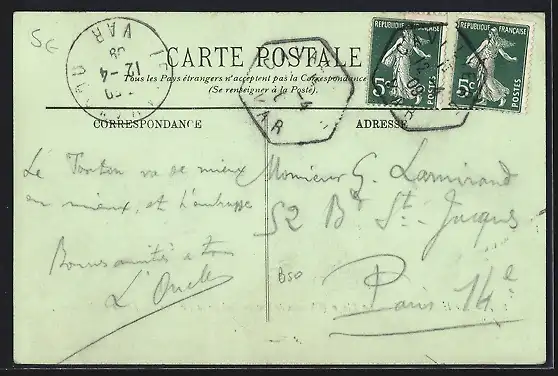 5c
VAR
12 -4
09
CARTE POSTALE
Tous les Pays étrangers n'acceptent pas la Correspondance
(Se renseigner à la Poste).
REPUBLIQUE FRANÇAISE
5c
POSTES
REPUBLIQUE FRANÇAISE
5c
POSTES
12 4
VAR
12 4
09
VAR
CORRESPONDANCE
ADRESSE
Le Tonton va de mieux
en mieux, et t'embrasse
Bonnes amitiés à tous
L'Oncle
Monsieur G. Larmirand
52 Bd St-Jacques
Paris 14e
B50